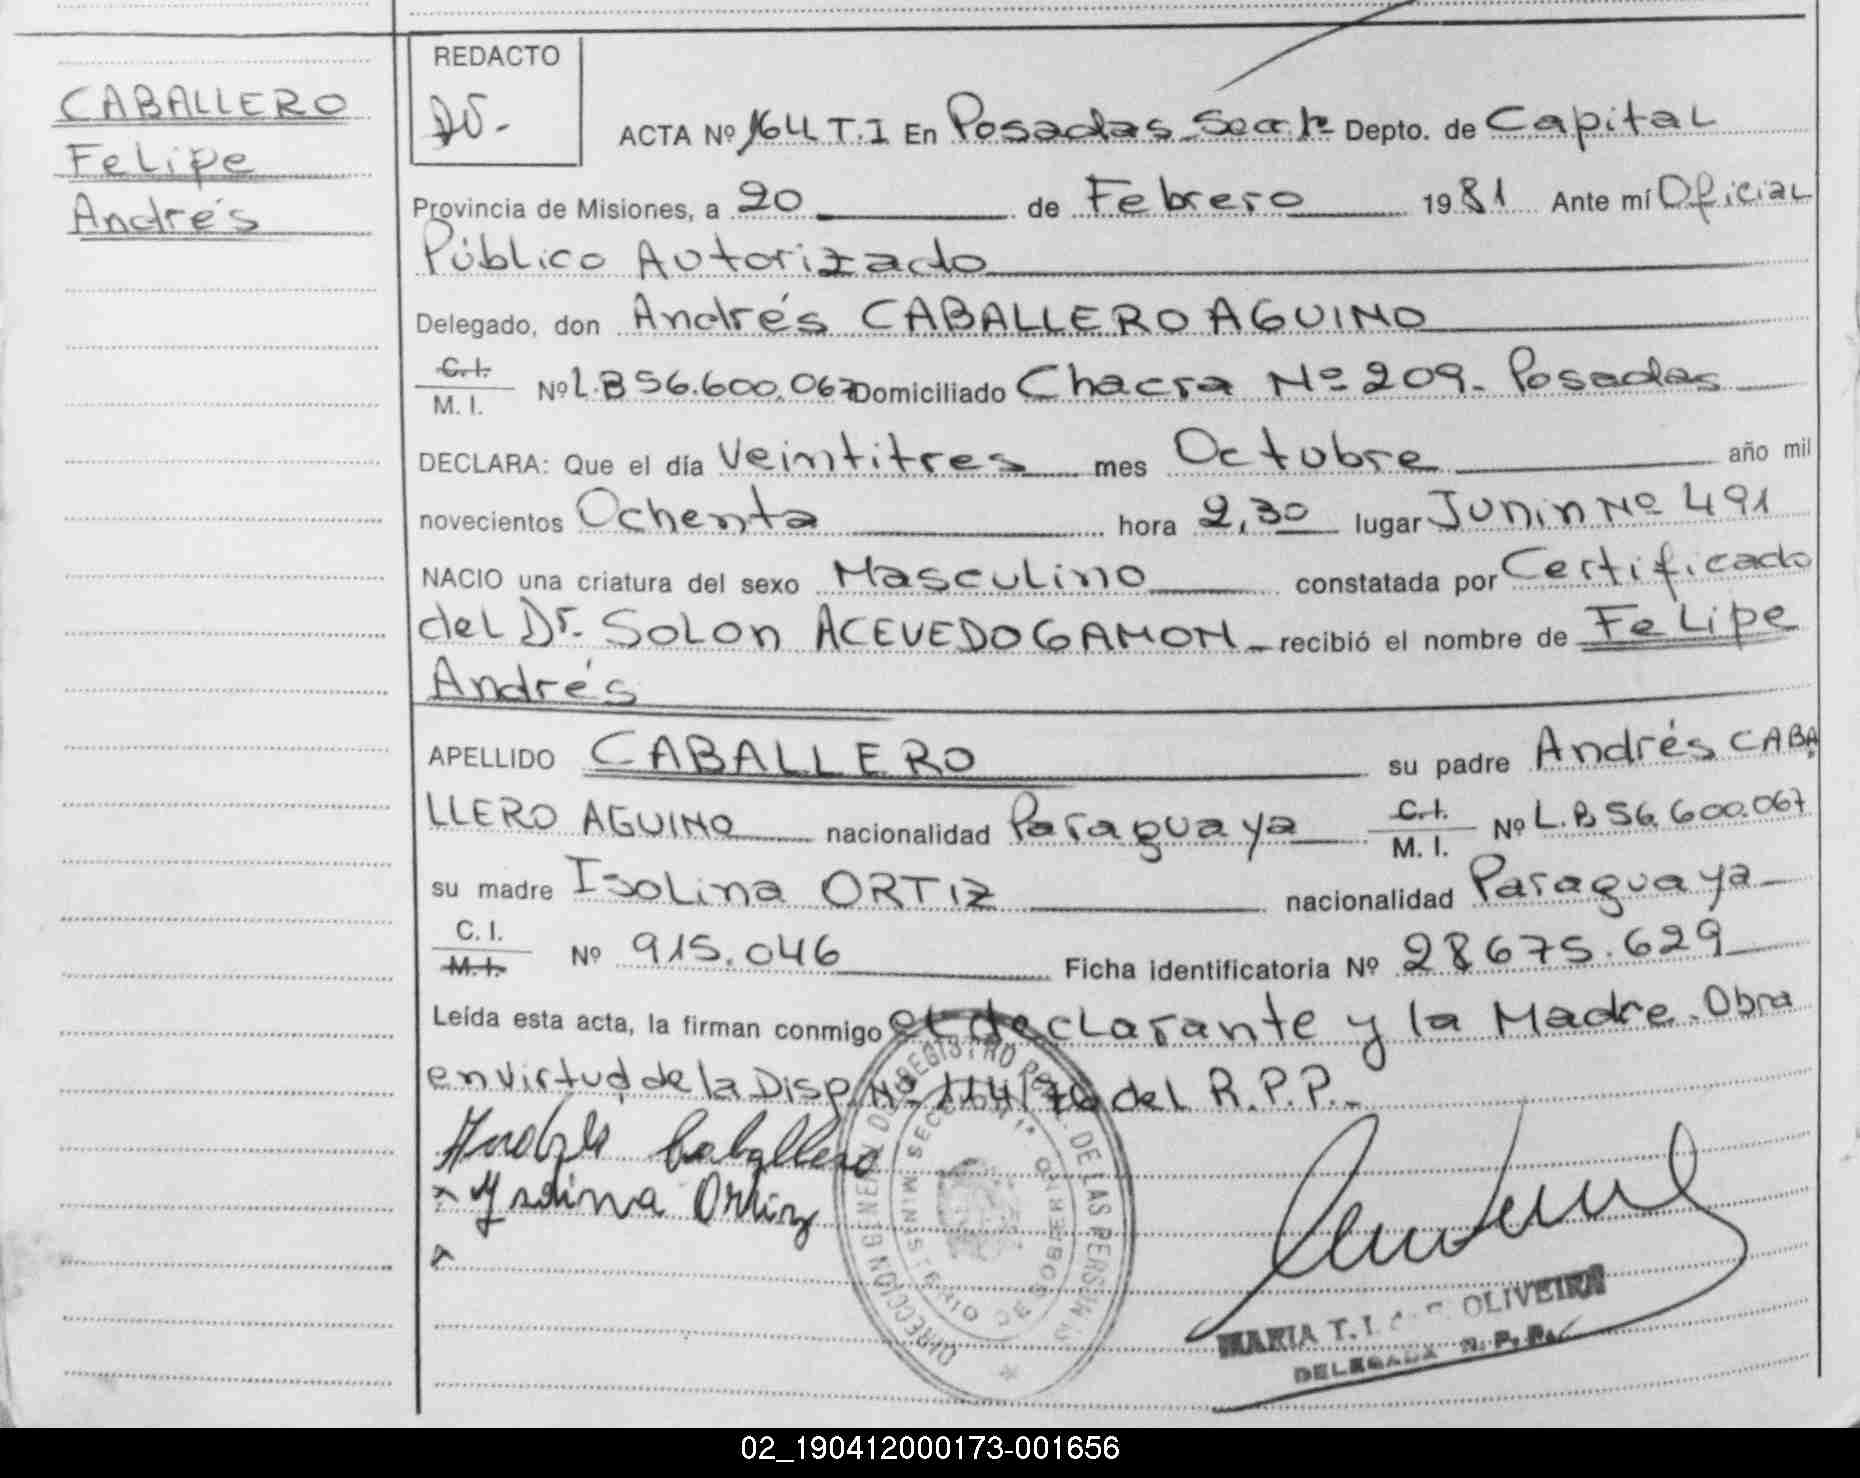 CABALLERO
Felipe
Andrés
REDACTO
ACTA Nº 164 T.I En Posadas Secc 1ª Depto. de Capital
Provincia de Misiones, a 20 de Febrero 1981 Ante mí Oficial
Público Autorizado
Delegado, don Andrés CABALLERO AGUINO
C.I.
M. I. Nº L.B 56.600.067 Domiciliado Chacra Nº 209. Posadas
DECLARA: Que el día Veintitres mes Octubre año mil
novecientos Ochenta hora 2,30 lugar Junin Nº 491
NACIO una criatura del sexo Masculino constatada por Certificado
del Dr. SOLON ACEVEDO GAMON recibió el nombre de Felipe
Andrés
APELLIDO CABALLERO su padre Andrés CABA
LLERO AGUINO nacionalidad Paraguaya C.I. M. I. Nº L.B 56.600.067
su madre Isolina ORTIZ nacionalidad Paraguaya
C. I.
M.I. Nº 915.046 Ficha identificatoria Nº 28675.629
Leída esta acta, la firman conmigo el declarante y la Madre. Obra
en virtud de la Disp. Nº 114/76 del R.P.P.
Andrés Caballero
Ysolina Ortiz
DIRECCION GENERAL DEL REGISTRO PCIAL. DE LAS PERSONAS
MINISTERIO DE GOBIERNO
SECCION 1ª
MARIA T. OLIVEIRA
DELEGADA R. P. P.
02_190412000173-001656